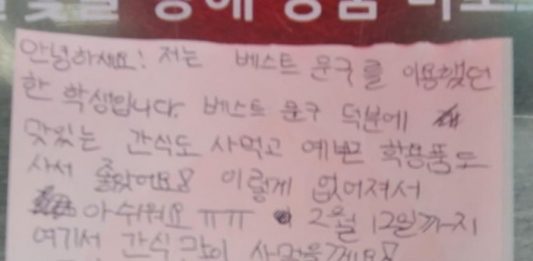 안녕하세요! 저는 베스트 문구를 이용했던
한 학생입니다. 베스트 문구 덕분에
맛있는 간식도 사먹고 예쁜 학용품도
사서 좋았어요! 이렇게 없어져서
아쉬워요 ㅠㅠ 2월 12일까지
여기서 간식 많이 사먹을게요!